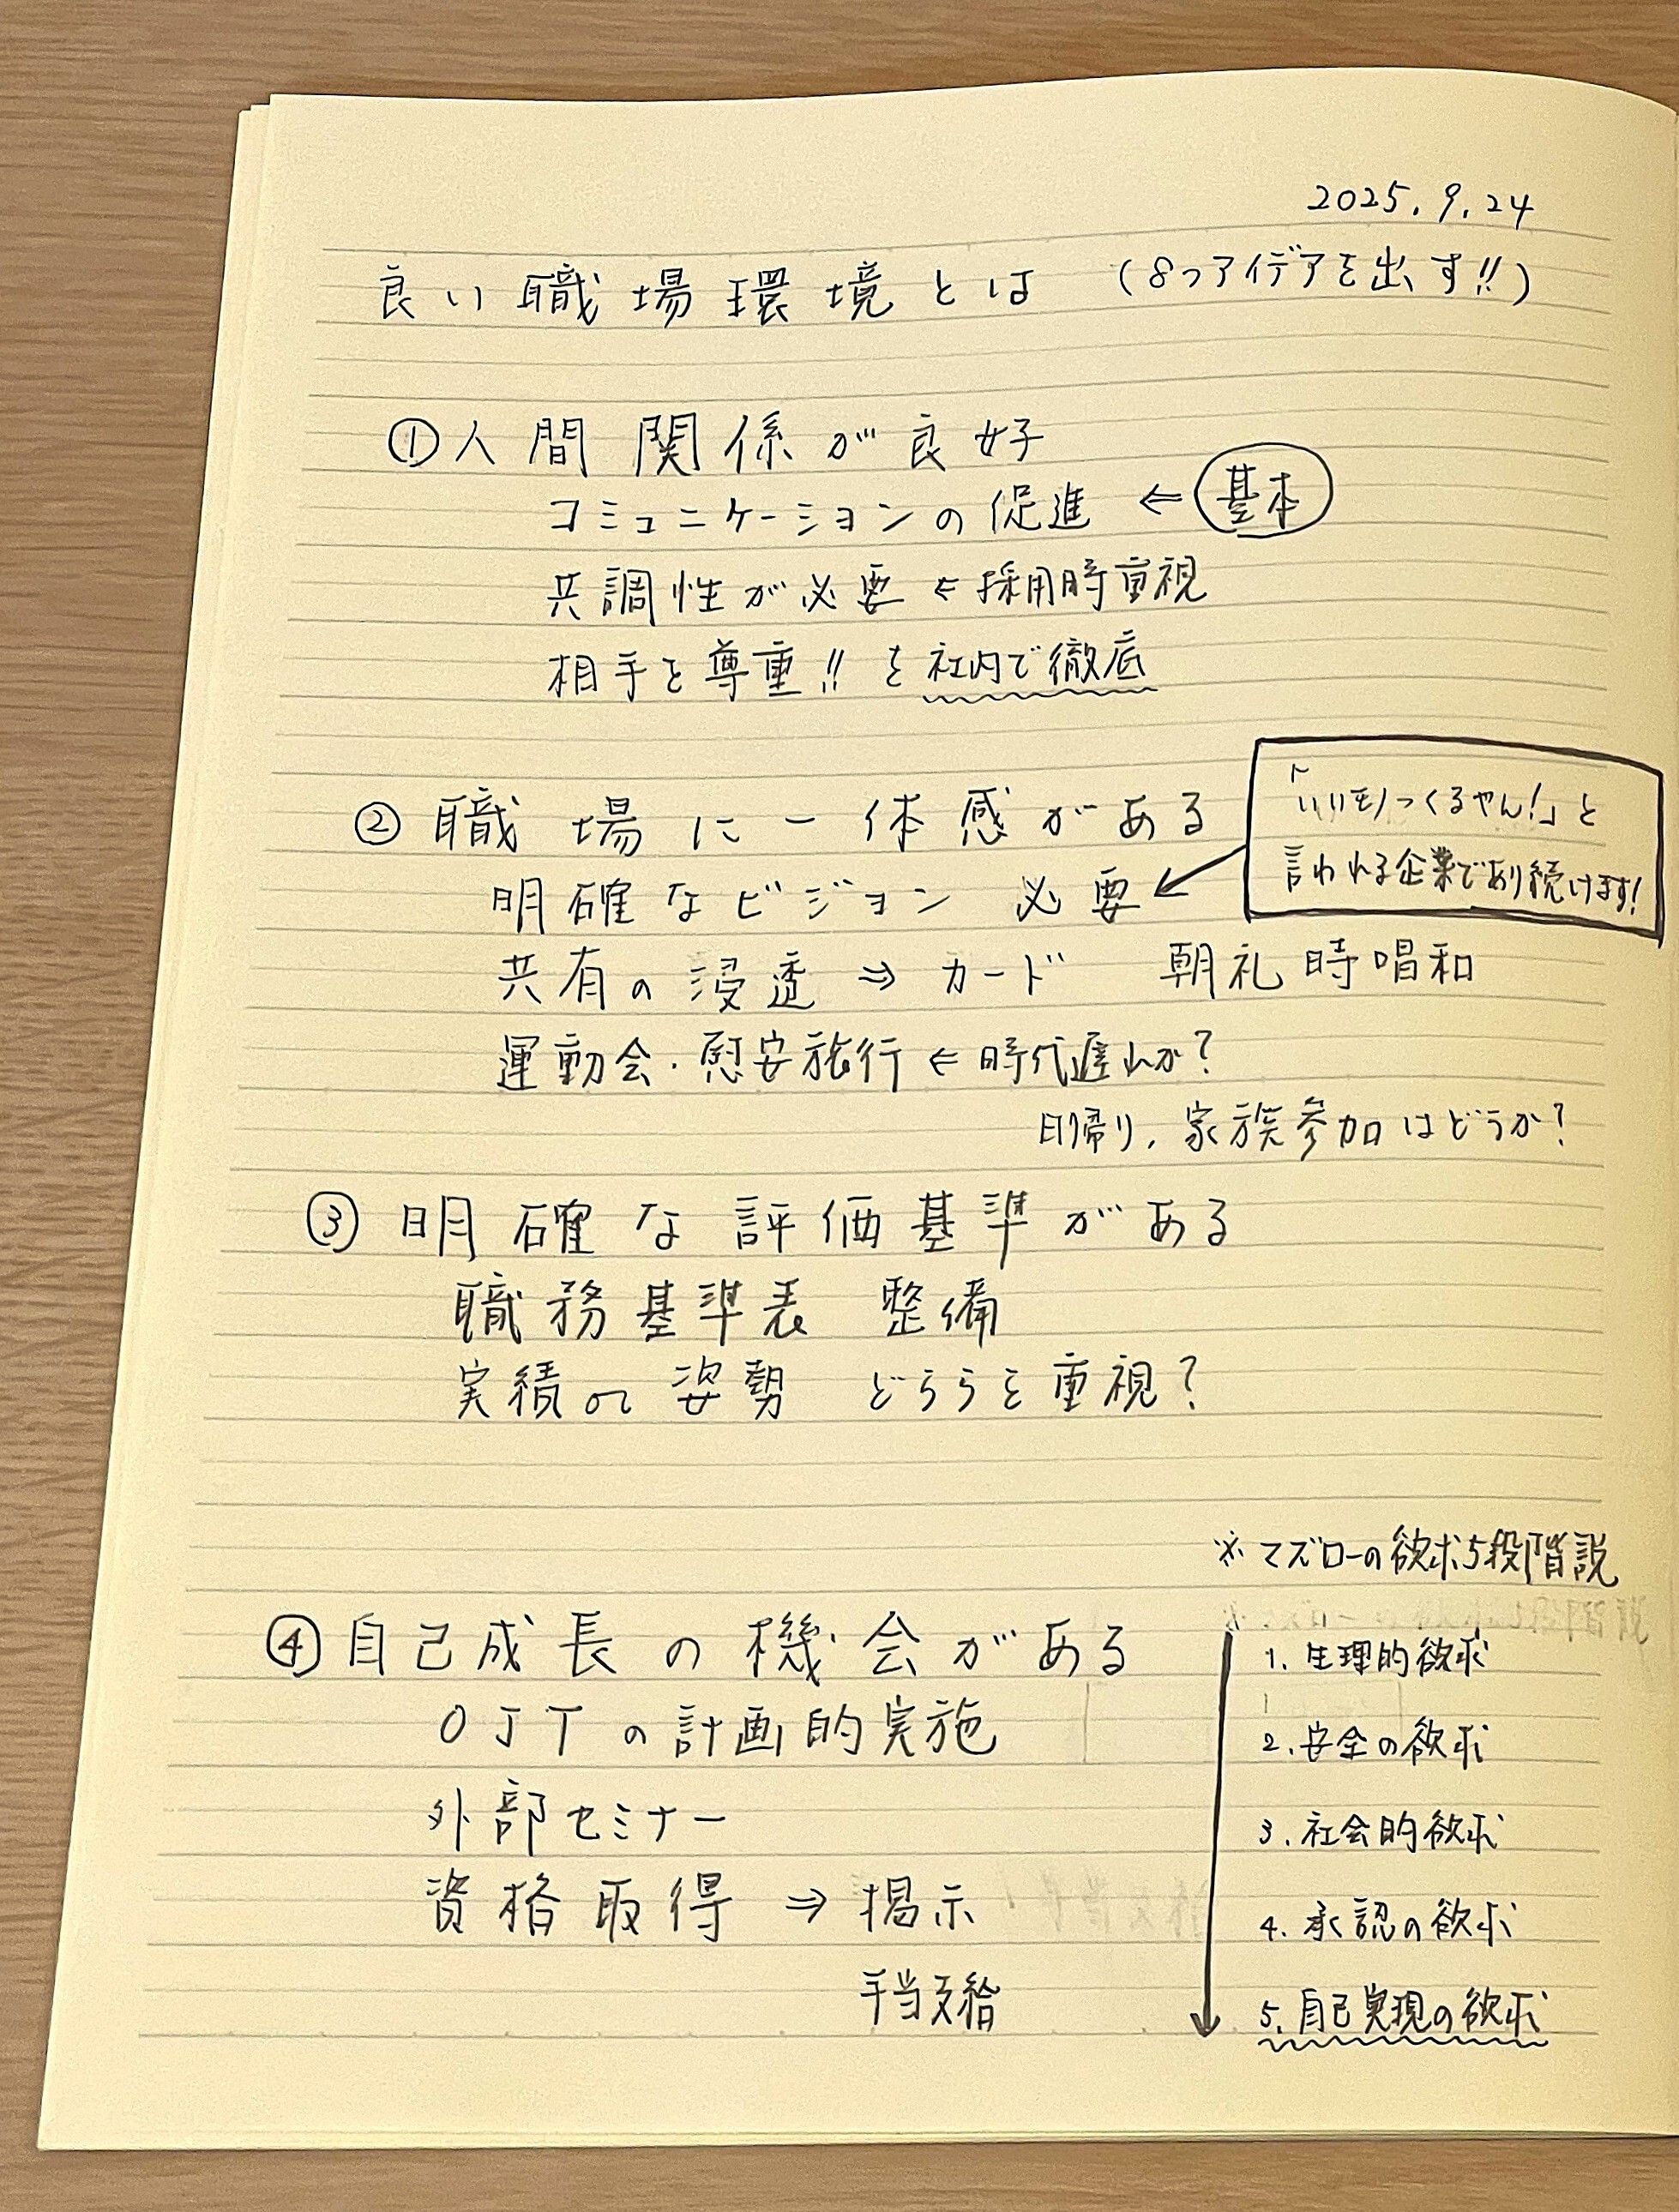 2025.9.24
良い職場環境とは (8つアイデアを出す!!)
①人間関係が良好
コミュニケーションの促進 ⇐ 基本
共調性が必要 ← 採用時重視
相手を尊重!! を社内で徹底
②職場に一体感がある
「いいモノつくるやん!」と
言われる企業であり続けます!
明確なビジョン 必要
共有の浸透 ⇒ カード 朝礼時唱和
運動会・慰安旅行 ← 時代遅れか?
日帰り, 家族参加はどうか?
③明確な評価基準がある
職務基準表 整備
実績or姿勢 どちらを重視?
※マズローの欲求5段階説
④自己成長の機会がある
OJTの計画的実施
外部セミナー
資格取得 ⇒ 掲示
手当支給
1. 生理的欲求
2. 安全の欲求
3. 社会的欲求
4. 承認の欲求
5. 自己実現の欲求